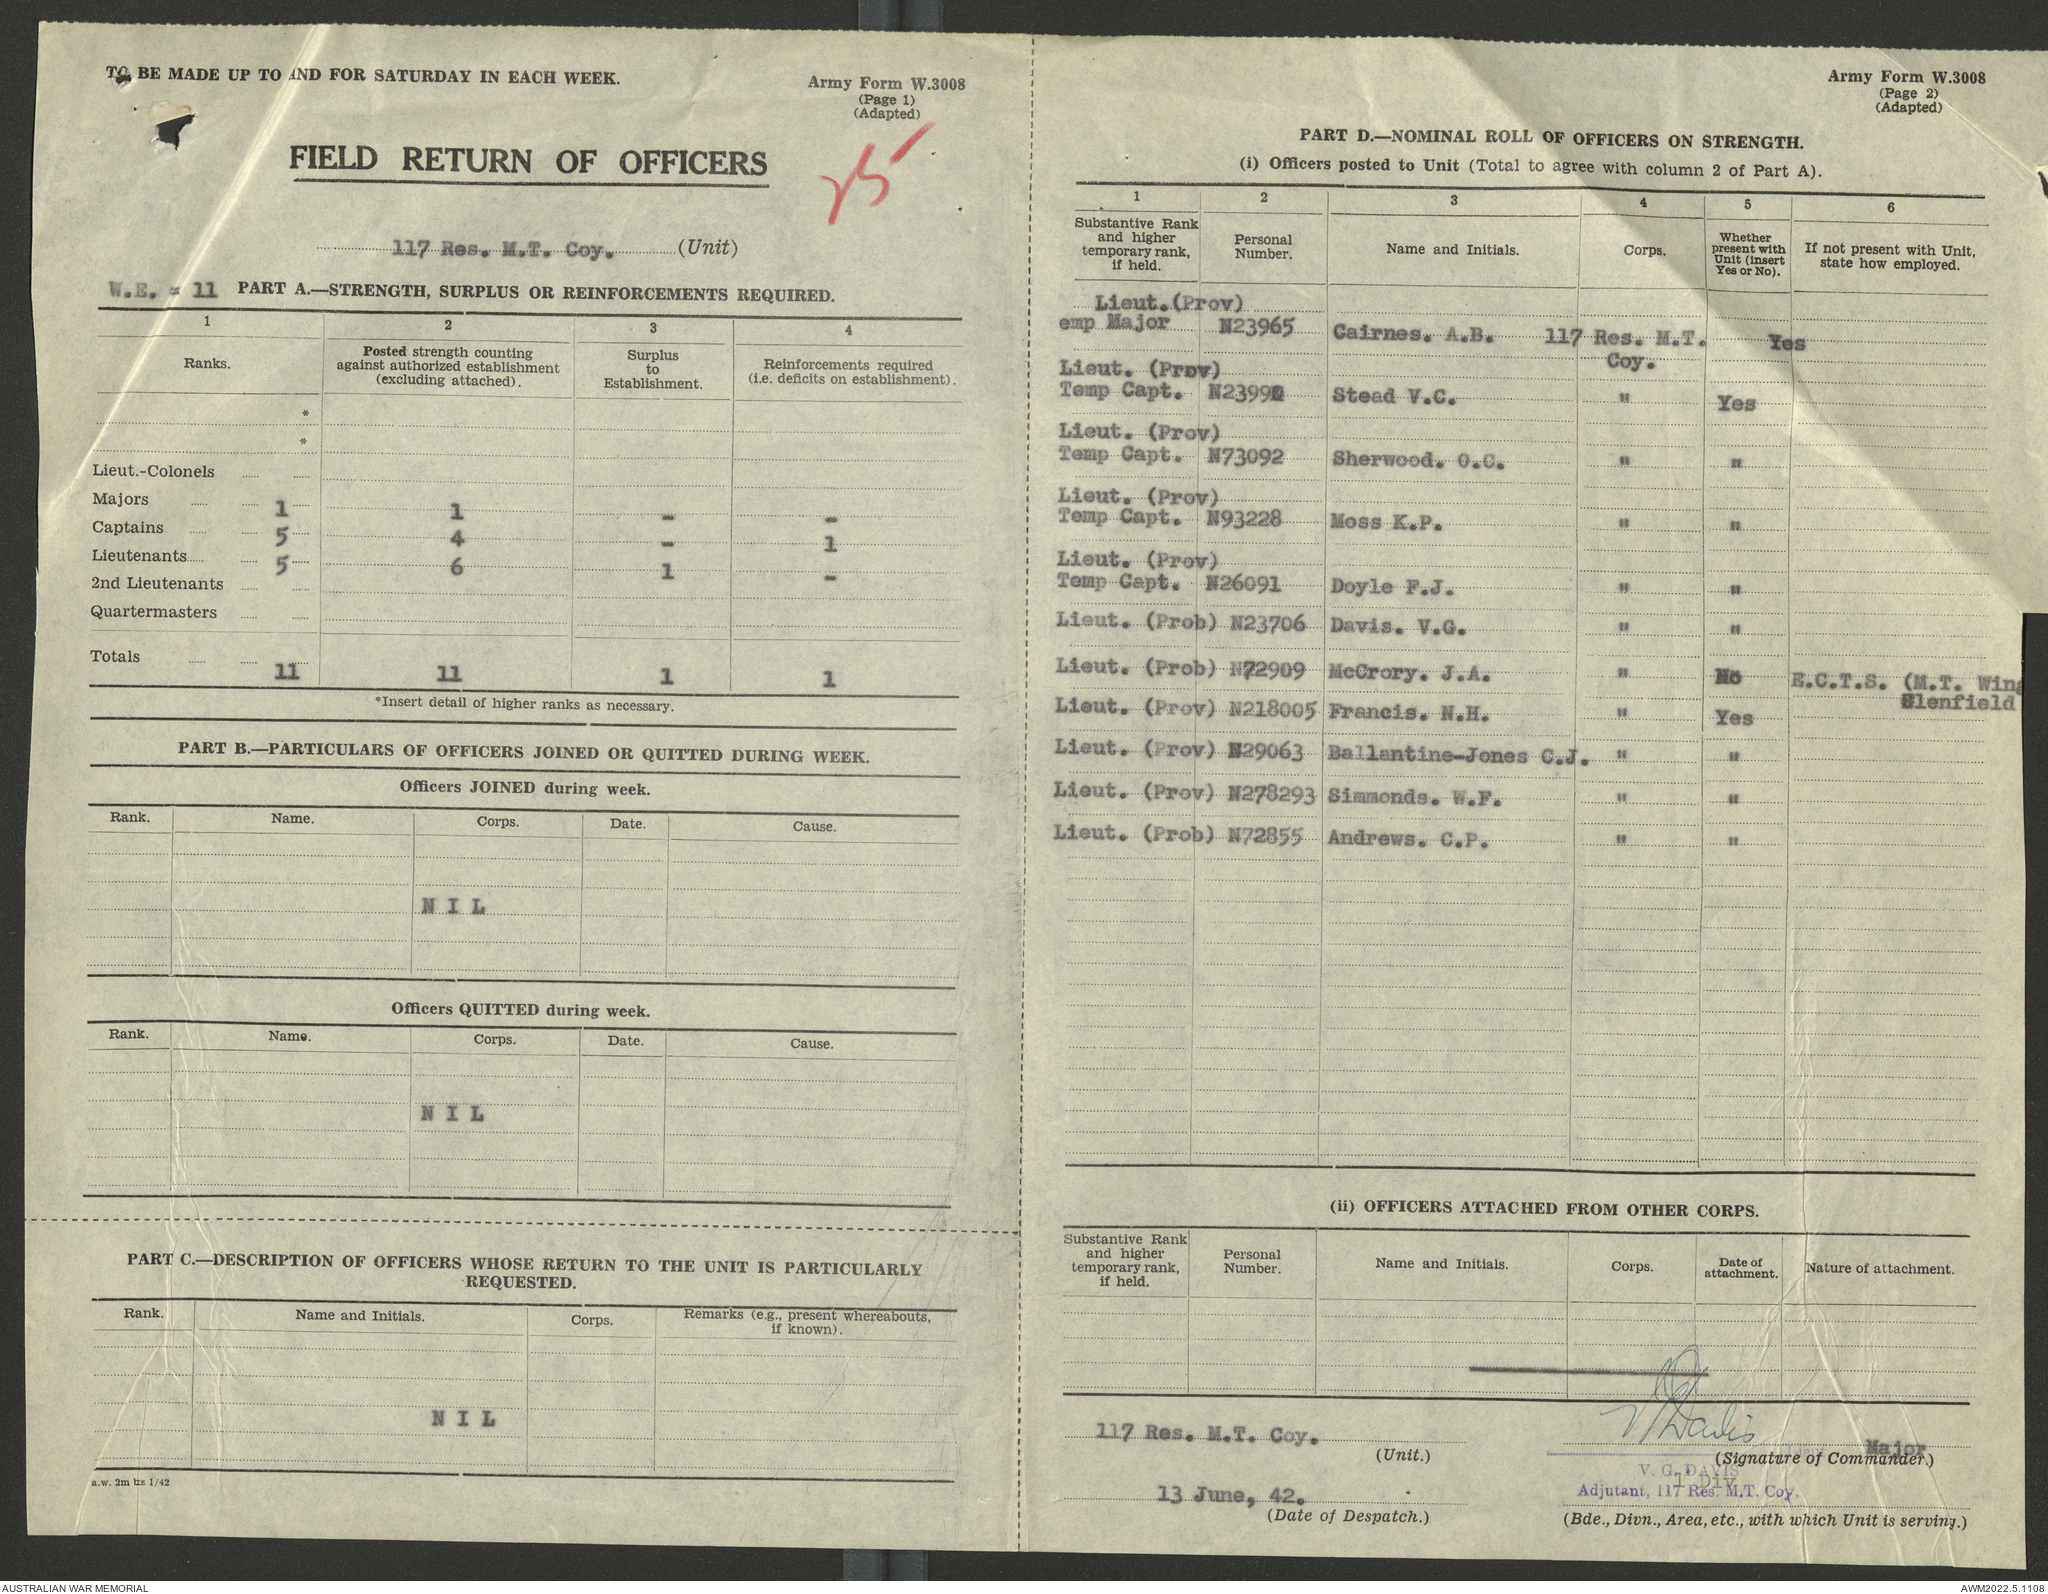 TO BE MADE UP TO AND FOR SATURDAY IN EACH WEEK.
Army Form W.3008
(Page 1)
(Adapted)
FIELD RETURN OF OFFICERS
25
117 Res. M.T. Coy. (Unit)
W.E. = 11 PART A.—STRENGTH, SURPLUS OR REINFORCEMENTS REQUIRED.
1 2 3 4
Ranks. Posted strength counting against authorized establishment (excluding attached). Surplus to Establishment. Reinforcements required (i.e. deficits on establishment).
*
*
Lieut.-Colonels
Majors 1 1 - -
Captains 5 4 - 1
Lieutenants 5 6 1 -
2nd Lieutenants
Quartermasters
Totals 11 11 1 1
*Insert detail of higher ranks as necessary.
PART B.—PARTICULARS OF OFFICERS JOINED OR QUITTED DURING WEEK.
Officers JOINED during week.
Rank. Name. Corps. Date. Cause.
N I L
Officers QUITTED during week.
Rank. Name. Corps. Date. Cause.
N I L
PART C.—DESCRIPTION OF OFFICERS WHOSE RETURN TO THE UNIT IS PARTICULARLY
REQUESTED.
Rank. Name and Initials. Corps. Remarks (e.g., present whereabouts, if known).
N I L
a.w. 2m bks 1/42
Army Form W.3008
(Page 2)
(Adapted)
PART D.—NOMINAL ROLL OF OFFICERS ON STRENGTH.
(i) Officers posted to Unit (Total to agree with column 2 of Part A).
1 2 3 4 5 6
Substantive Rank and higher temporary rank, if held. Personal Number. Name and Initials. Corps. Whether present with Unit (insert Yes or No). If not present with Unit, state how employed.
Lieut.(Prov)
emp Major N23965 Cairnes. A.B. 117 Res. M.T. Yes
Coy.
Lieut. (Prov)
Temp Capt. Stead V.C. " Yes
Lieut. (Prov)
Temp Capt. N73092 Sherwood. O.C. " "
Lieut. (Prov)
Temp Capt. N93228 Moss K.P. " "
Lieut. (Prov)
Temp Capt. N26091 Doyle F.J. " "
Lieut. (Prob) N23706 Davis. V.G. " "
Lieut. (Prob) N72909 McCrory. J.A. " No E.C.T.S. (M.T. Wing
Glenfield
Lieut. (Prov) N218005 Francis. N.H. " Yes
Lieut. (Prov) N29063 Ballantine-Jones C.J. " "
Lieut. (Prov) N278293 Simmonds. W.F. " "
Lieut. (Prob) N72855 Andrews. C.P. " "
(ii) OFFICERS ATTACHED FROM OTHER CORPS.
Substantive Rank and higher temporary rank, if held. Personal Number. Name and Initials. Corps. Date of attachment. Nature of attachment.
117 Res. M.T. Coy.
(Unit.)
V G Davis
Major
(Signature of Commander.)
V. G. DAVIS
1 Div
Adjutant, 117 Res. M.T. Coy.
13 June, 42.
(Date of Despatch.)
(Bde., Divn., Area, etc., with which Unit is serving.)
AUSTRALIAN WAR MEMORIAL
AWM2022.5.1108